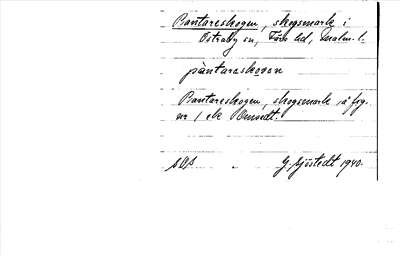 Pantareskogen, skogsmark i
Östraby sn, Färs hd, Malm. l.
pàntareskoven
Pantareskogen, skogsmark, å frg.
nr 1 ek
SOS G. Sjöstedt 1940.